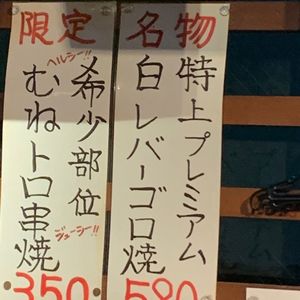 名物
特上プレミアム
白レバーゴロ焼
580
限定
ヘルシー!!
希少部位
ジューシー!!
むねトロ串焼
350